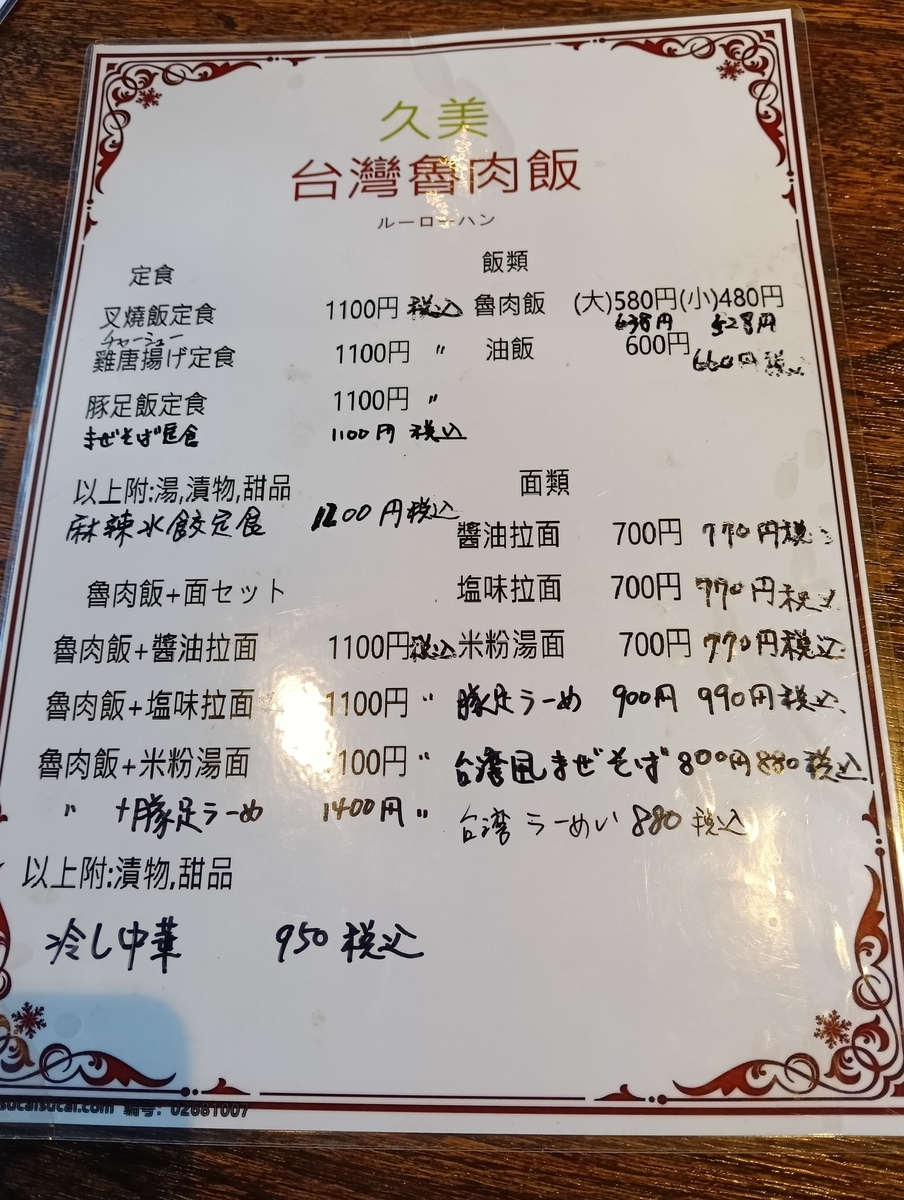 久美
台灣魯肉飯
ルーローハン
定食
叉燒飯定食 1100円 税込
チャーシュー
雞唐揚げ定食 1100円 〃
豚足飯定食 1100円 〃
まぜそば定食 1100円 税込
以上附:湯,漬物,甜品
麻辣水餃定食 1200円税込
魯肉飯+面セット
魯肉飯+醬油拉面 1100円税込
魯肉飯+塩味拉面 1100円 〃
魯肉飯+米粉湯面 100円 〃
〃 +豚足らーめ 1400円 〃
以上附:漬物,甜品
冷し中華 950 税込
飯類
魯肉飯 (大)580円(小)480円
638円 528円
油飯 600円
660円 税
面類
醬油拉面 700円 770円税
塩味拉面 700円 770円税込
米粉湯面 700円 770円税込
豚足らーめ 900円 990円税込
台湾風まぜそば 800円 880税込
台湾らーめい 880 税込
sucaisucai.com 编号: 02681007